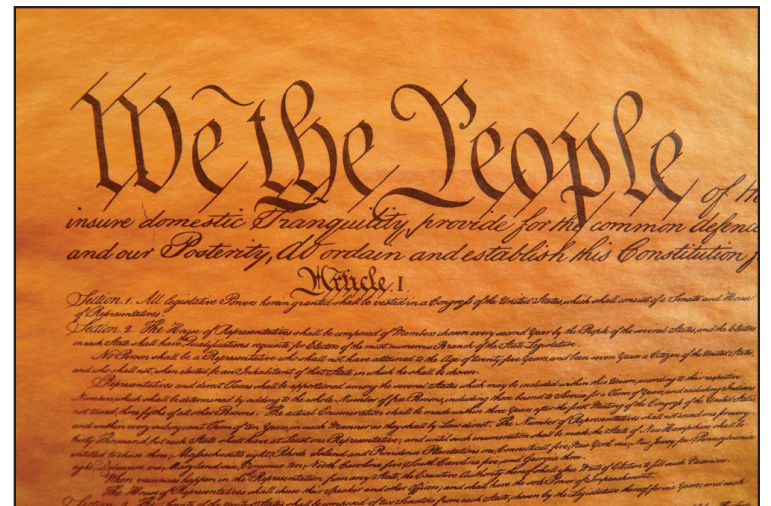 We the People of th
insure domestic Tranquility, provide for the common defence
and our Posterity, do ordain and establish this Constitution f
Article. I.
Section. 1. All legislative Powers herein granted shall be vested in a Congress of the United States, which shall consist of a Senate and House
of Representatives.
Section. 2. The House of Representatives shall be composed of Members chosen every second Year by the People of the several States, and the Electors
in each State shall have the Qualifications requisite for Electors of the most numerous Branch of the State Legislature.
No Person shall be a Representative who shall not have attained to the Age of twenty five Years, and been seven Years a Citizen of the United States,
and who shall not, when elected, be an Inhabitant of that State in which he shall be chosen.
Representatives and direct Taxes shall be apportioned among the several States which may be included within this Union, according to their respective
Numbers, which shall be determined by adding to the whole Number of free Persons, including those bound to Service for a Term of Years, and excluding Indians
not taxed, three fifths of all other Persons. The actual Enumeration shall be made within three Years after the first Meeting of the Congress of the United States,
and within every subsequent Term of ten Years, in such Manner as they shall by Law direct. The Number of Representatives shall not exceed one for every
thirty Thousand, but each State shall have at Least one Representative; and until such enumeration shall be made, the State of New Hampshire shall be
entitled to chuse three, Massachusetts eight, Rhode Island and Providence Plantations one, Connecticut five, New York six, New Jersey four, Pennsylvania
eight, Delaware one, Maryland six, Virginia ten, North Carolina five, South Carolina five, and Georgia three.
When vacancies happen in the Representation from any State, the Executive Authority thereof shall issue Writs of Election to fill such Vacancies.
The House of Representatives shall chuse their Speaker and other Officers; and shall have the sole Power of Impeachment.
Section. 3. The Senate of the United States shall be composed of two Senators from each State, chosen by the Legislature thereof, for six Years; and each